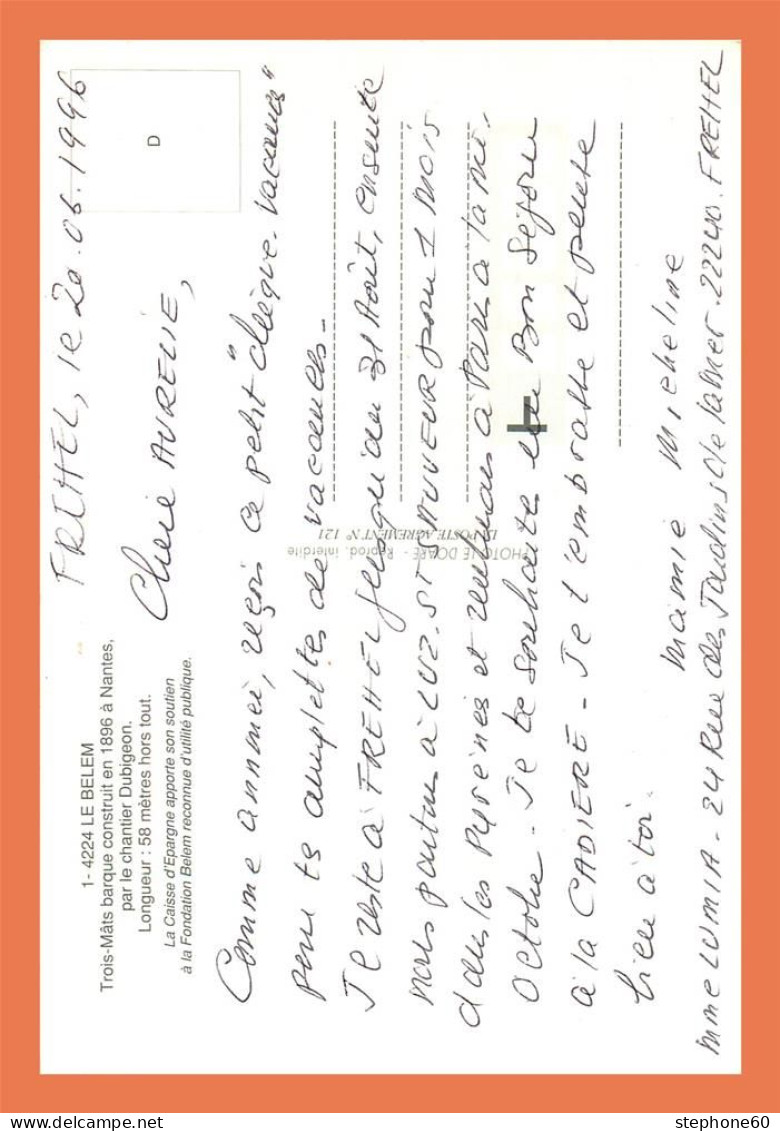 1- 4224 LE BELEM
Trois-Mâts barque construit en 1896 à Nantes,
par le chantier Dubigeon.
Longueur : 58 mètres hors tout.
La Caisse d'Epargne apporte son soutien
à la Fondation Belem reconnue d'utilité publique.
D
FREHEL, le 20.06.1996
Chère AURELIE,
Comme annoncé, reçois ce petit "chèque-vacances"
pour tes emplettes de vacances-
Je reste à FREHEL jusqu'au 31 Août, ensuite
nous partons à LUZ. ST SAUVEUR pour 1 mois
dans les Pyrénées et retournons à Paris à la mi-
octobre - Je te souhaite un Bon Séjour
à la CADIERE - Je t'embrasse et pense
bien à toi.
Mamie Micheline
Mme LUMIA - 24 Rue des Jardins de la Mer. 22240. FREHEL
PHOTO LE DOARE - Reprod. interdite
LA POSTE AGREMENT N° 121
stephone60